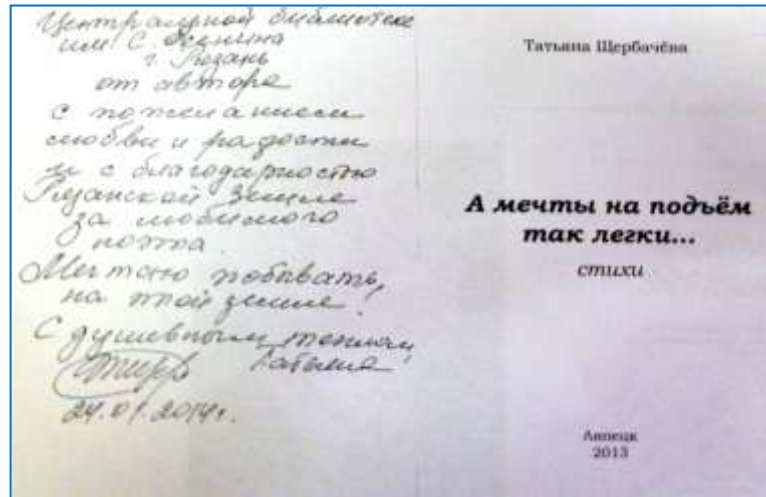 Центральной библиотеке
им С. Есенина
г. Рязань
от автора
с пожеланием
любви и радости
и с благодарностью
Рязанской Земле
за любимого
поэта.
Мечтаю побывать
на этой земле!
С душевным теплом,
Татьяна
24.01.2014г.
Татьяна Щербачёва
А мечты на подъём
так легки...
стихи
Липецк
2013